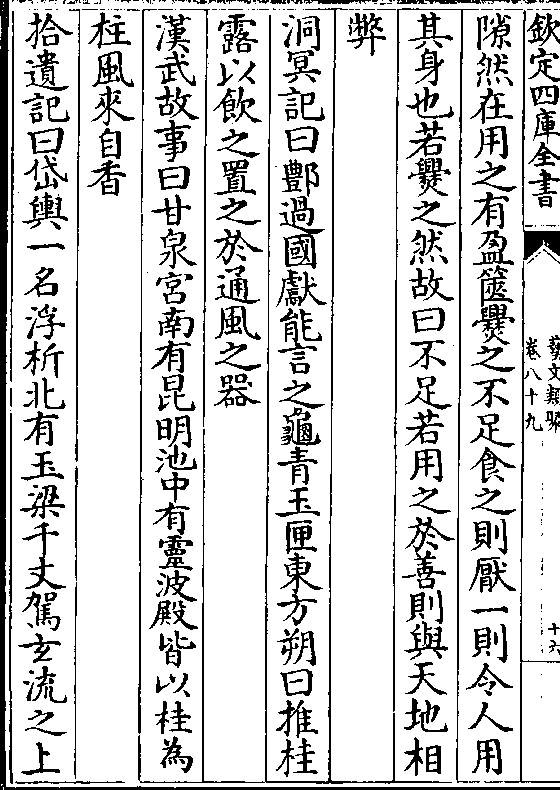 欽定四庫全書
藝文類聚
卷八十九
十六
隙然在用之有盈篋㸑之不足食之則厭一則令人用
其身也若㸑之然故曰不足若用之於善則與天地相
弊
洞冥記曰酆過國獻能言之龜青玉匣東方朔曰推桂
露以飲之置之於通風之器
漢武故事曰甘泉宮南有昆明池中有靈波殿皆以桂為
柱風來自香
拾遺記曰岱輿一名浮析北有玉梁千丈駕玄流之上